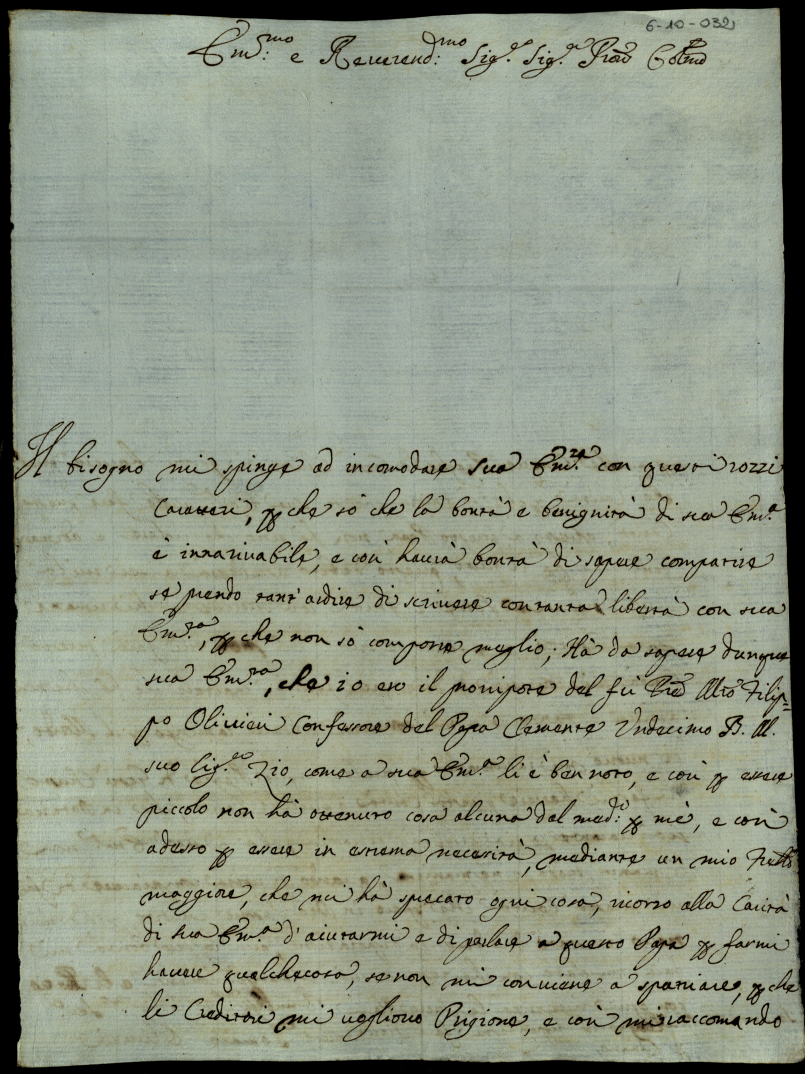 6-10-032
Em.mo e Reverend.mo Sig.re Sig.re Pron Colmo
Il bisogno mi spinge ad incomodare sua Em.za con questi rozzi
Caratteri, p che sò che la bontà e benignità di sua Em.a
è innarivabile, e così haurà bontà di sapere compatire
se prendo tant'ardire di scrivere con tanta libertà con sua
Em.za, p che non sò comporre meglio; Hà da sapere dunque
sua Em.za, che io ero il pronipote del fù Pred Mro Filip=
po Olivieri Confessore del Papa Clemente Undecimo B. M.
suo Sig.re Zio, come a sua Em.a li è ben noto, e così p essere
piccolo non hà ottenuto cosa alcuna dal med.o p mè, e così
adesso p essere in estrema necessità, mediante un mio Frello
maggiore, che mi hà sprecato ogni cosa, ricorro alla Carità
di sua Em.a d'aiutarmi e di parlare a questo Papa p farmi
havere qualchecosa, se non mi conviene a spatriare, p che
li Creditori mi vogliono Prigione, e così mi raccomando